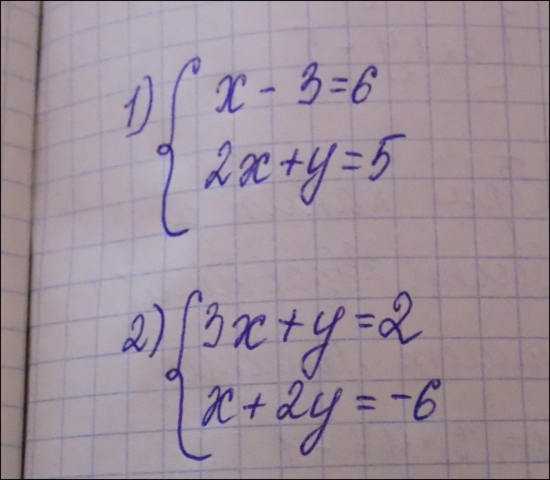 1) { x - 3 = 6
2x + y = 5
2) { 3x + y = 2
x + 2y = -6